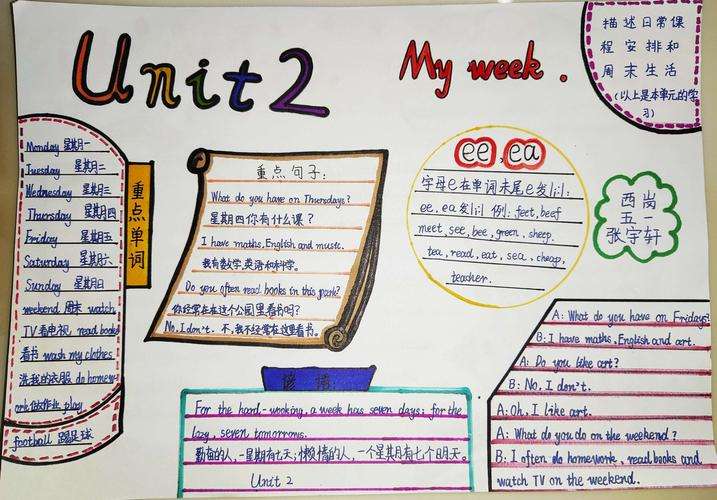 Unit 2
My week.
描述日常课
程安排和
周末生活
(以上是本单元的学
习)
Monday 星期一
Tuesday 星期二
Wednesday 星期三
Thursday 星期四
Friday 星期五
Saturday 星期六
Sunday 星期日
weekend 周末 watch
TV 看电视 read books
看书 wash my clothes
洗我的衣服 do homew
ork 做作业 play
football 踢足球
重点单词
重点句子:
What do you have on Thursdays?
星期四你有什么课?
I have maths, English and music.
我有数学,英语和科学。
Do you often read books in this park?
你经常在这个公园里看书吗?
No, I don't. 不,我不经常在这里看书。
ee, ea
字母e在单词末尾e发/i:/:
ee, ea 发/i:/ 例: feet, beef
meet, see, bee, green, sheep.
tea, read, eat, sea, cheap,
teacher.
西岗
五一
张宇轩
谚语
For the hard-working, a week has seven days; for the
lazy, seven tomorrows.
勤奋的人,一星期有七天;懒惰的人,一个星期有七个明天。
Unit 2
A: What do you have on Fridays?
B: I have maths, English and art.
A: Do you like art?
B: No, I don't.
A: Oh, I like art.
A: What do you do on the weekend?
B: I often do homework, read books and
watch TV on the weekend.